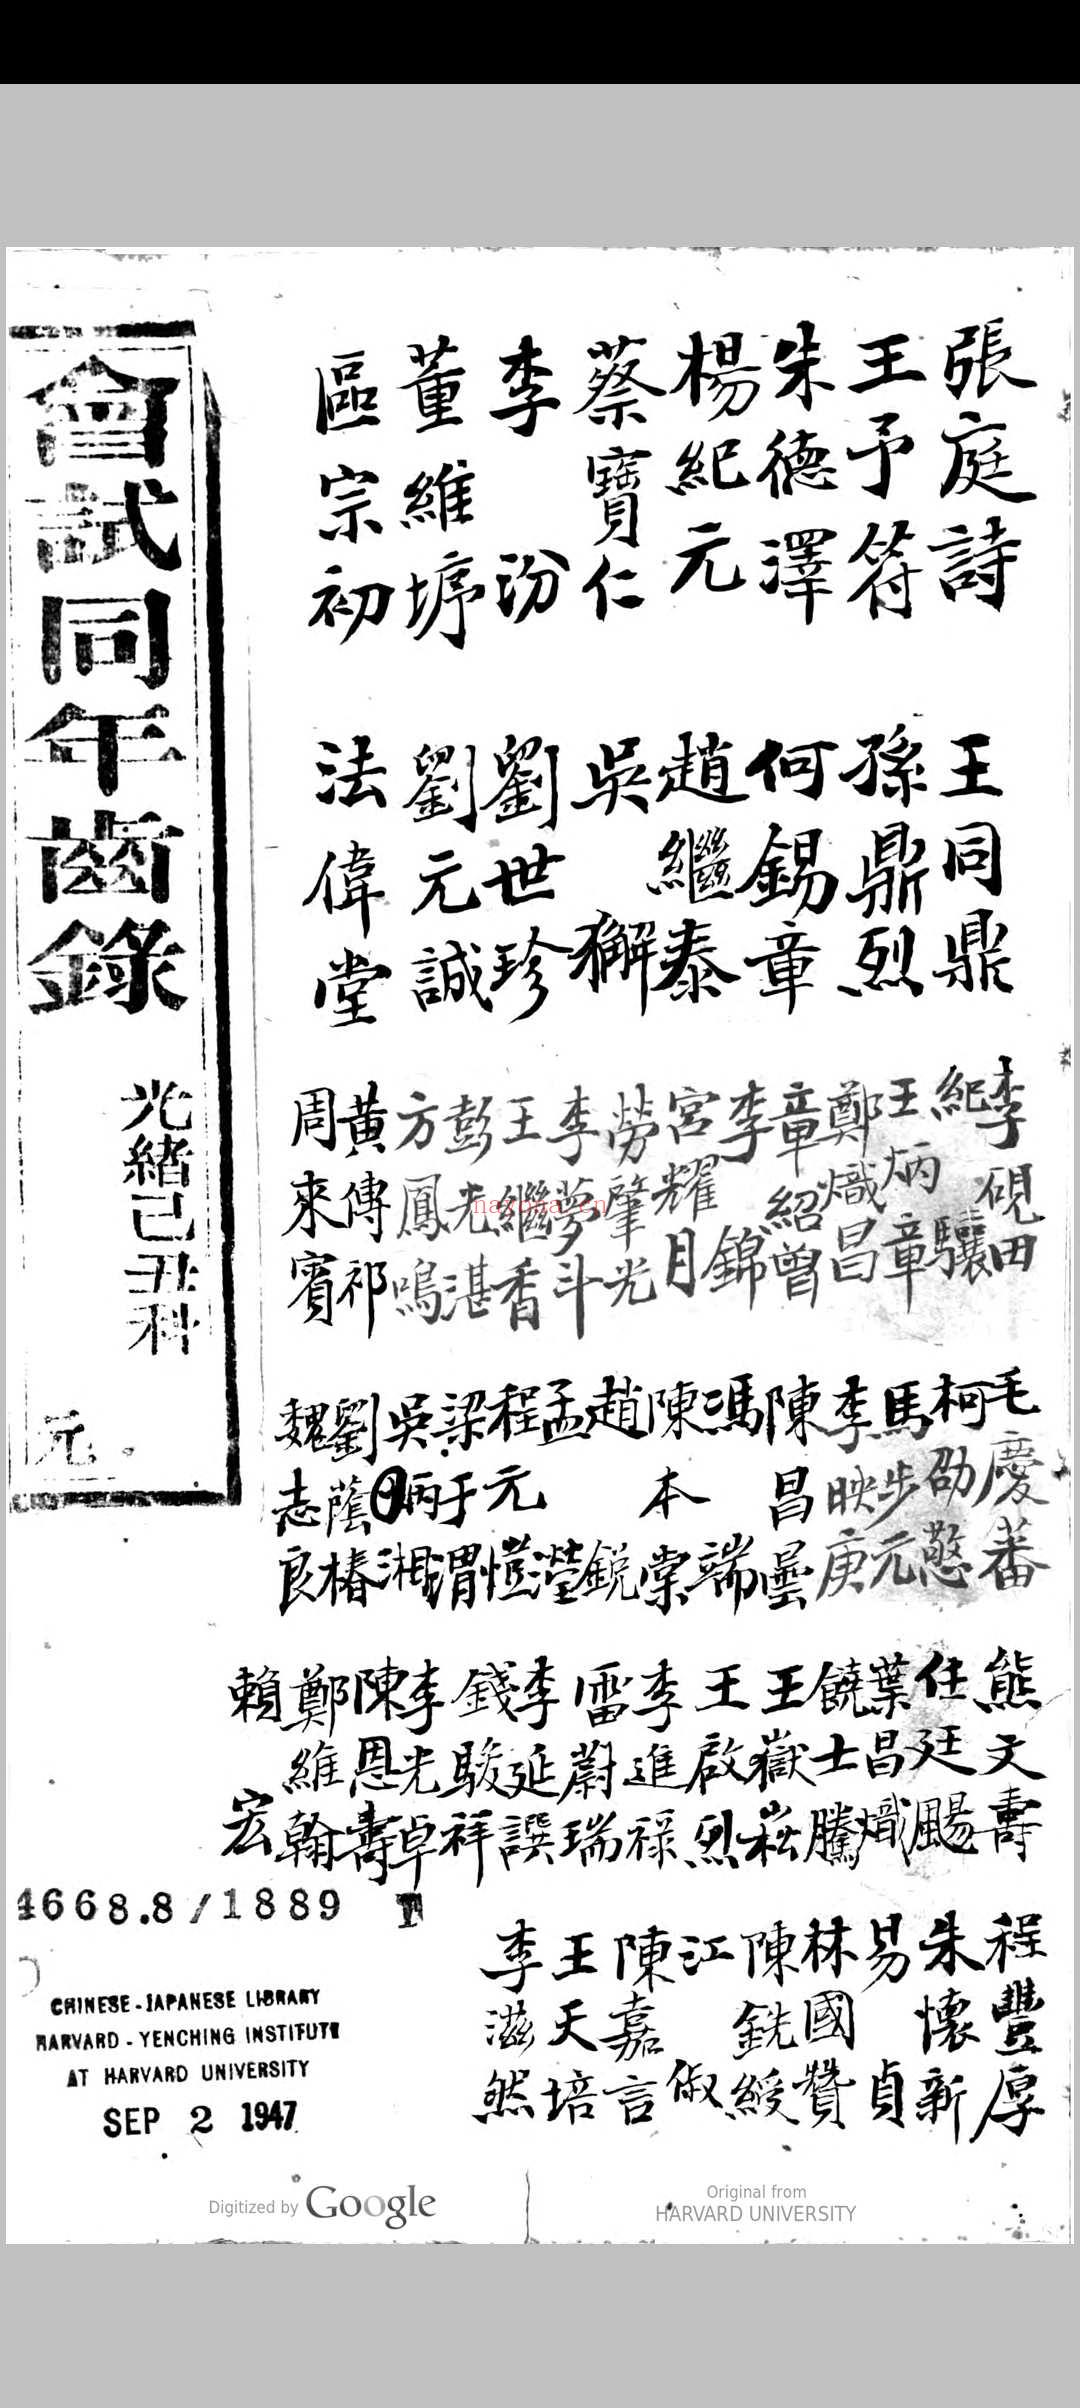 張庭詩
王予符
朱德澤
楊紀元
蔡寶仁
李汾
董維㙔
區宗初
王同鼎
孫鼎烈
何錫章
趙繼泰
吳獬
劉世珍
劉元誠
法偉堂
李硯田
紀驤
王炳章
鄭熾昌
章紹曾
李錦
宮耀月
勞肇光
李夢斗
王繼香
彭光湛
方鳳鳴
黃傳祁
周來賓
毛慶蕃
柯劭憼
馬步元
李映庚
陳昌曇
馮端
陳本棠
趙銳
孟瀅
程元愷
梁于渭
吳炳湘
劉蔭椿
魏志良
熊文壽
任廷颺
葉昌熾
饒士騰
王嶽崧
王啟烈
李進祿
雷蔚瑞
李延譔
錢駿祥
李光卓
陳恩壽
鄭維翰
賴宏
程豐厚
朱懷新
易貞
林國贊
陳銑綬
江俶
陳嘉言
王天培
李滋然
會試同年齒錄
光緒己丑科
元
nayona.cn
4668.8/1889
CHINESE-JAPANESE LIBRARY
HARVARD-YENCHING INSTITUTE
AT HARVARD UNIVERSITY
SEP 2 1947
Digitized by Google
Original from
HARVARD UNIVERSITY